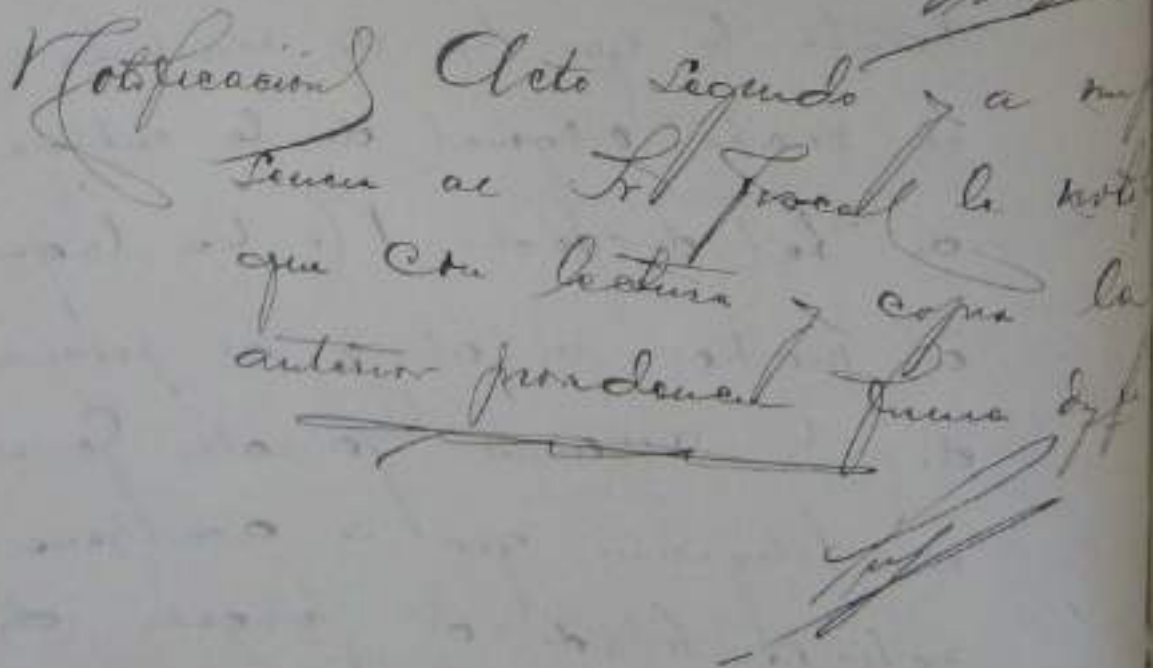 Notificacion Acto seguido y a mi pre
sencia al Sr Fiscal le noti
que con lectura y copia la
anterior providencia firma doy f